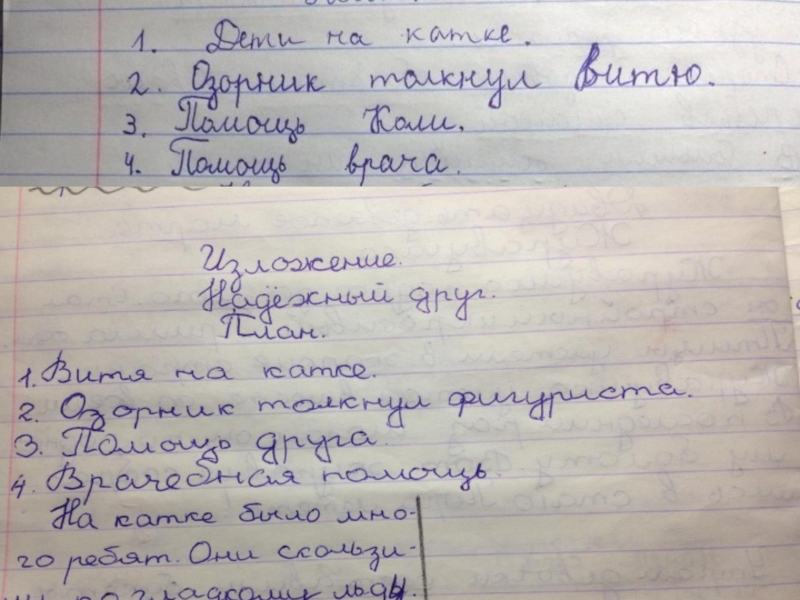 1. Дети на катке.
2. Озорник толкнул Витю.
3. Помощь Коли.
4. Помощь врача.
Изложение.
Надёжный друг.
План.
1. Витя на катке.
2. Озорник толкнул фигуриста.
3. Помощь друга.
4. Врачебная помощь.
На катке было мно-
го ребят. Они скользи-
ли по гладкому льду.